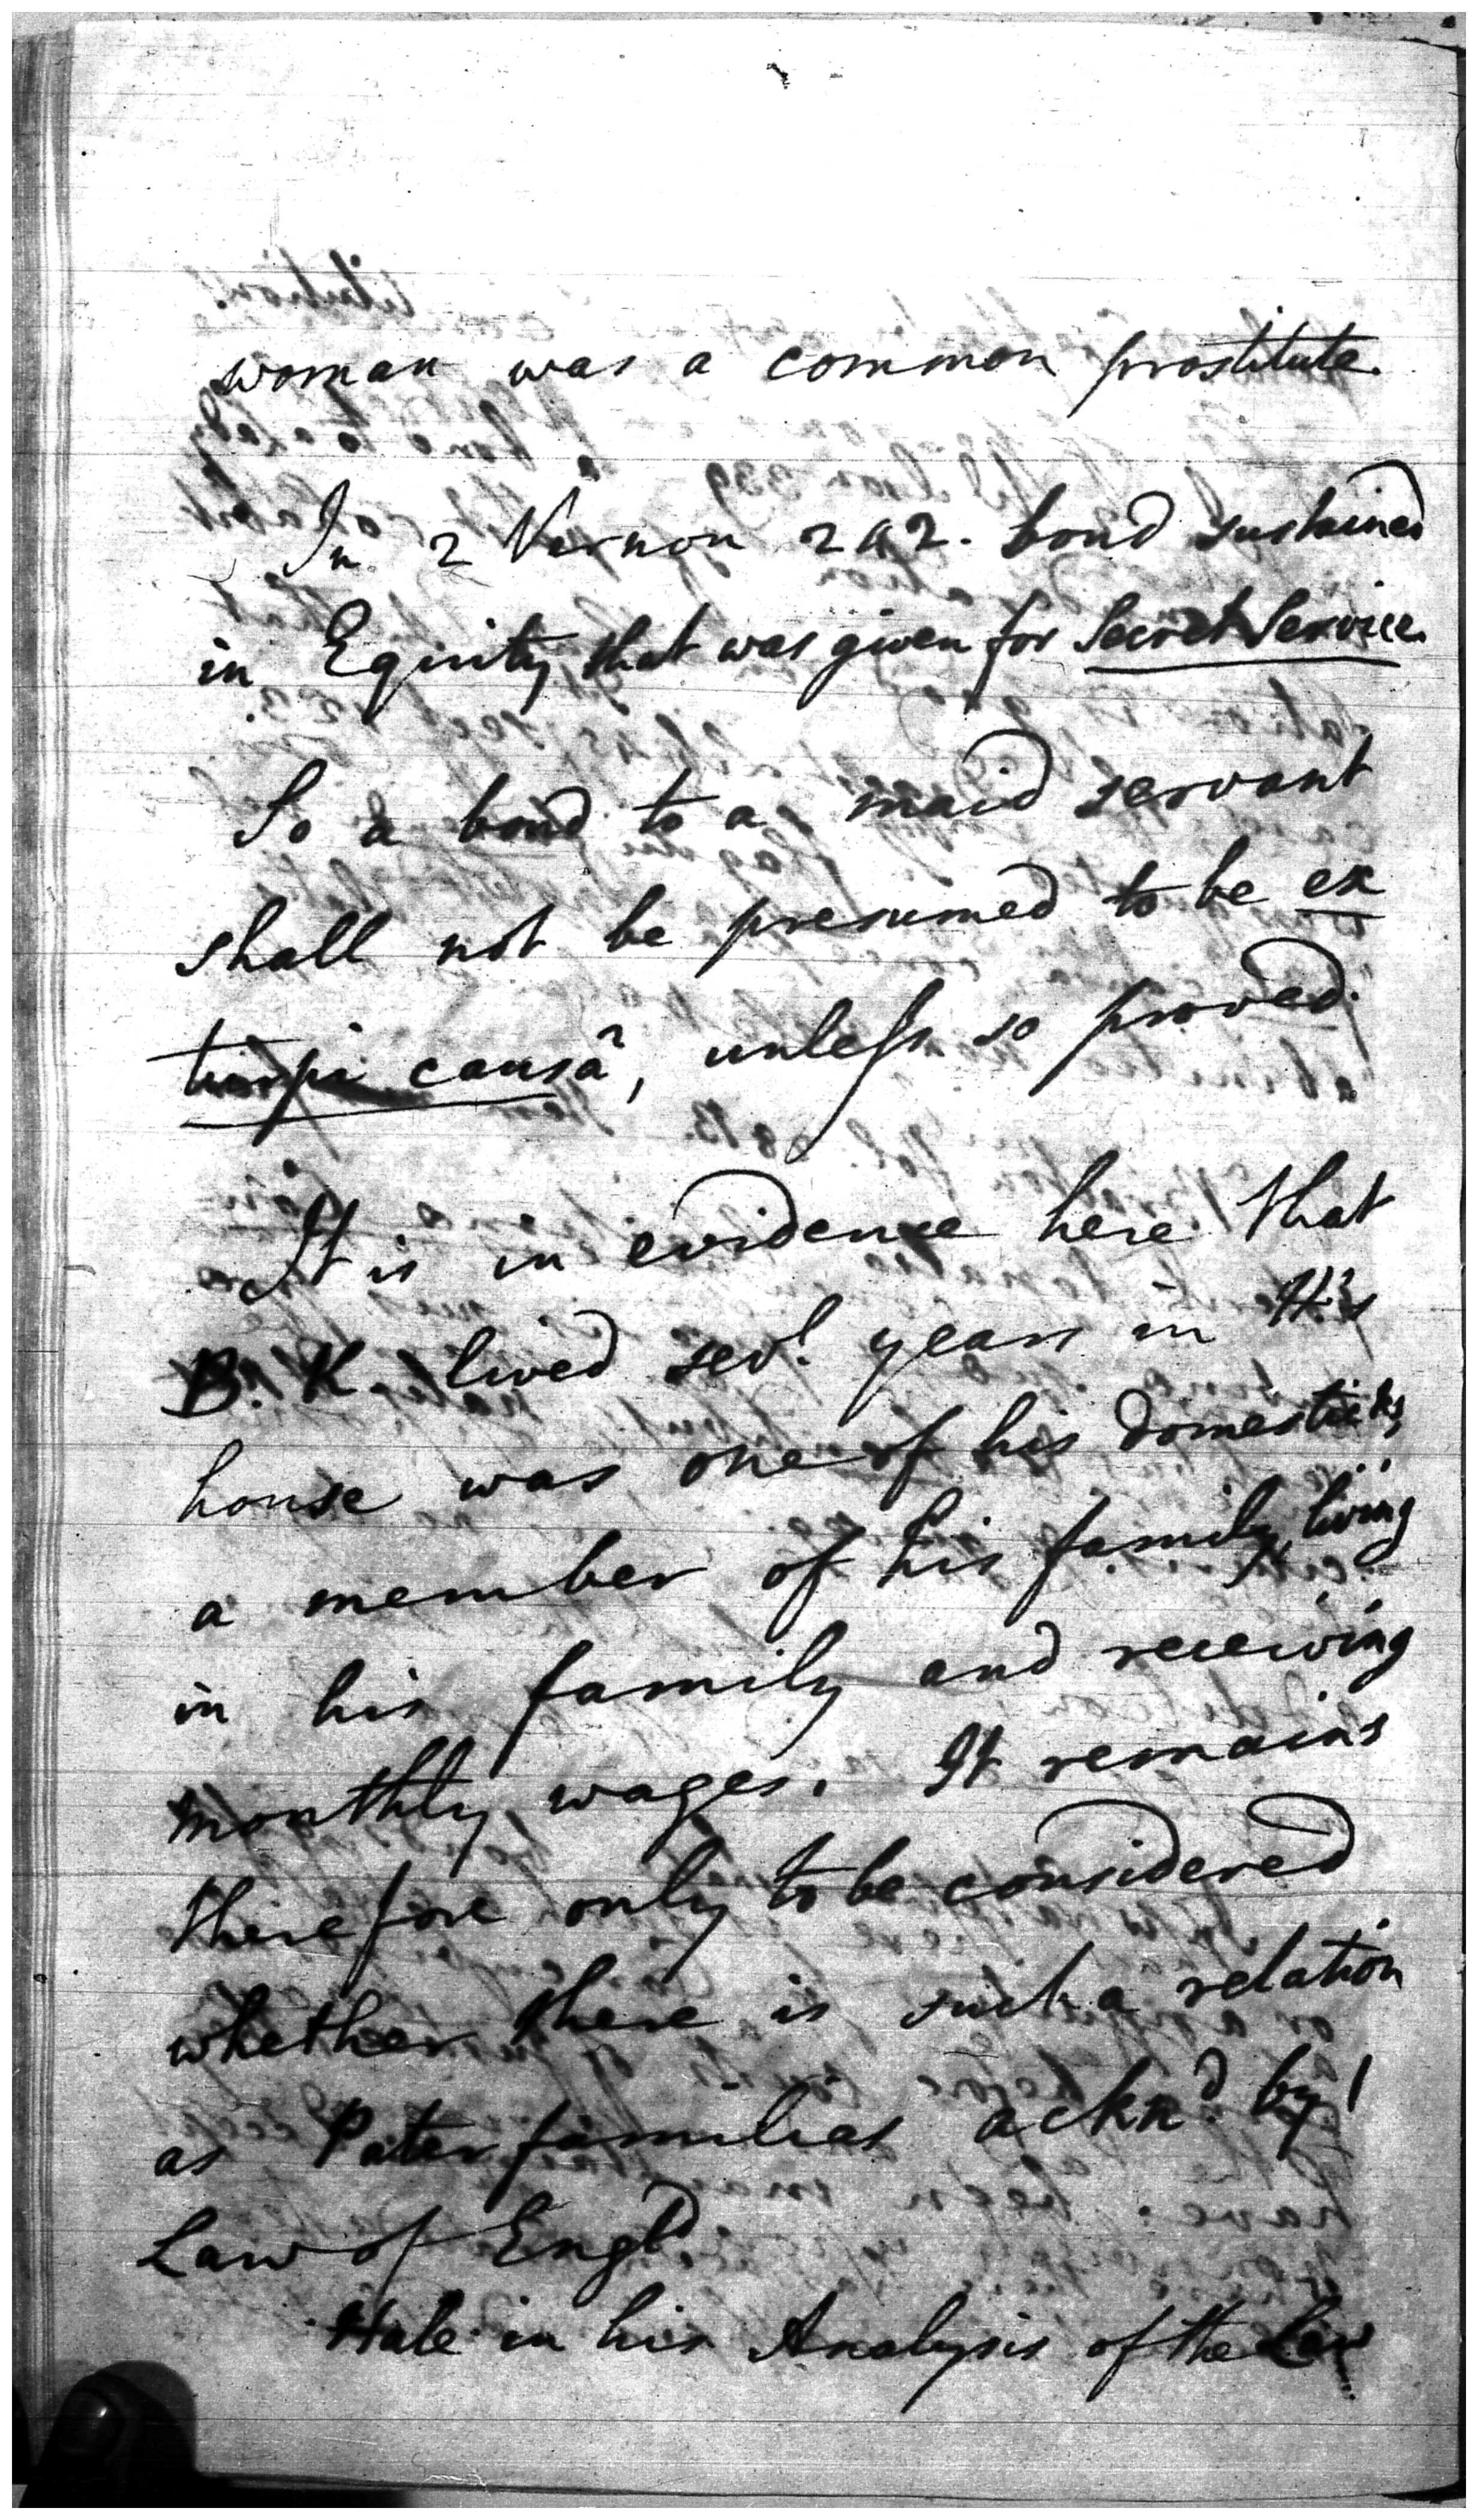 woman was a common prostitute.
In 2 Vernon 242. bond sustained
in Equity that was given for Secret Service.
So a bond to a maid servant
shall not be presumed to be ex
turpi causâ, unless so proved.
It is in evidence here that
B. K. lived sevl. years in H's
house was one of his domesticks,
a member of his family, living
in his family and receiving
monthly wages. It remains
therefore only to be considered
whether there is such a relation
as Paterfamilias acknd. by
Law of Engld.
Hale in his Analysis of the Law